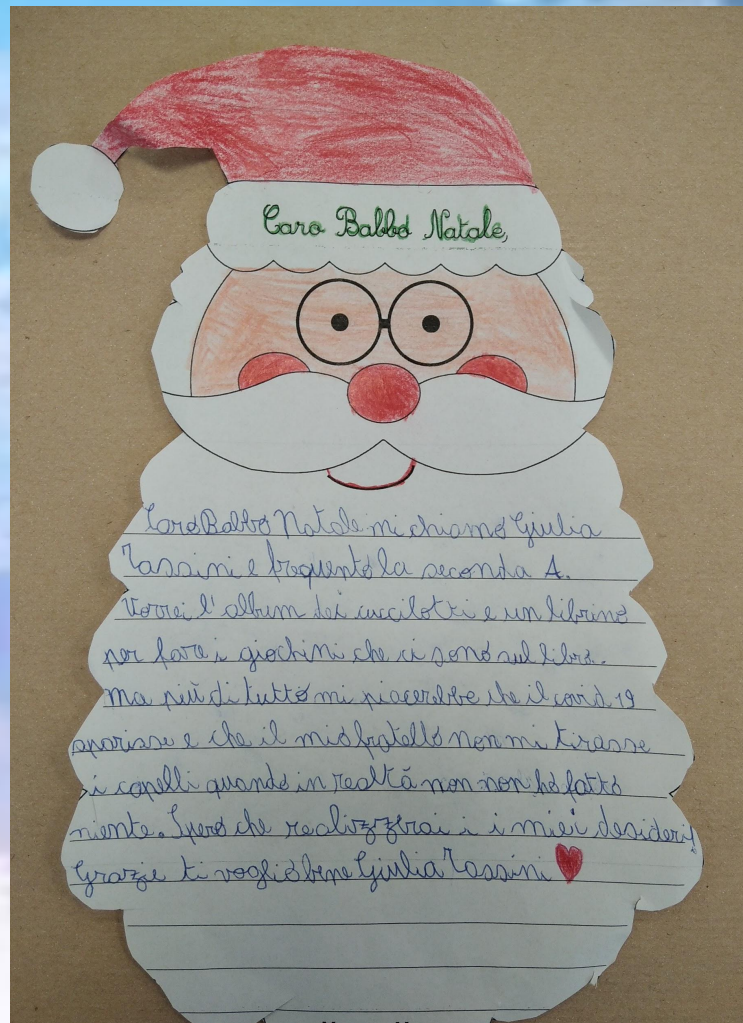 Caro Babbo Natale,
Caro Babbo Natale mi chiamo Giulia
Tassini e frequento la seconda A.
Vorrei l'album dei cuccilotti e un librino
per fare i giochini che ci sono sul libro.
Ma più di tutto mi piacerebbe che il covid 19
sparisse e che il mio fratello non mi tirasse
i capelli quando in realtà non non ho fatto
niente. Spero che realizzerai i i miei desideri!
Grazie ti voglio bene Giulia Tassini